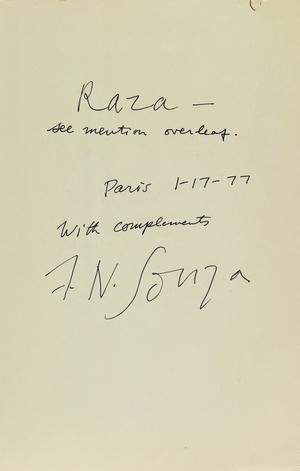 Raza —
see mention overleaf.
Paris 1-17-77
With complements
F. N. Souza